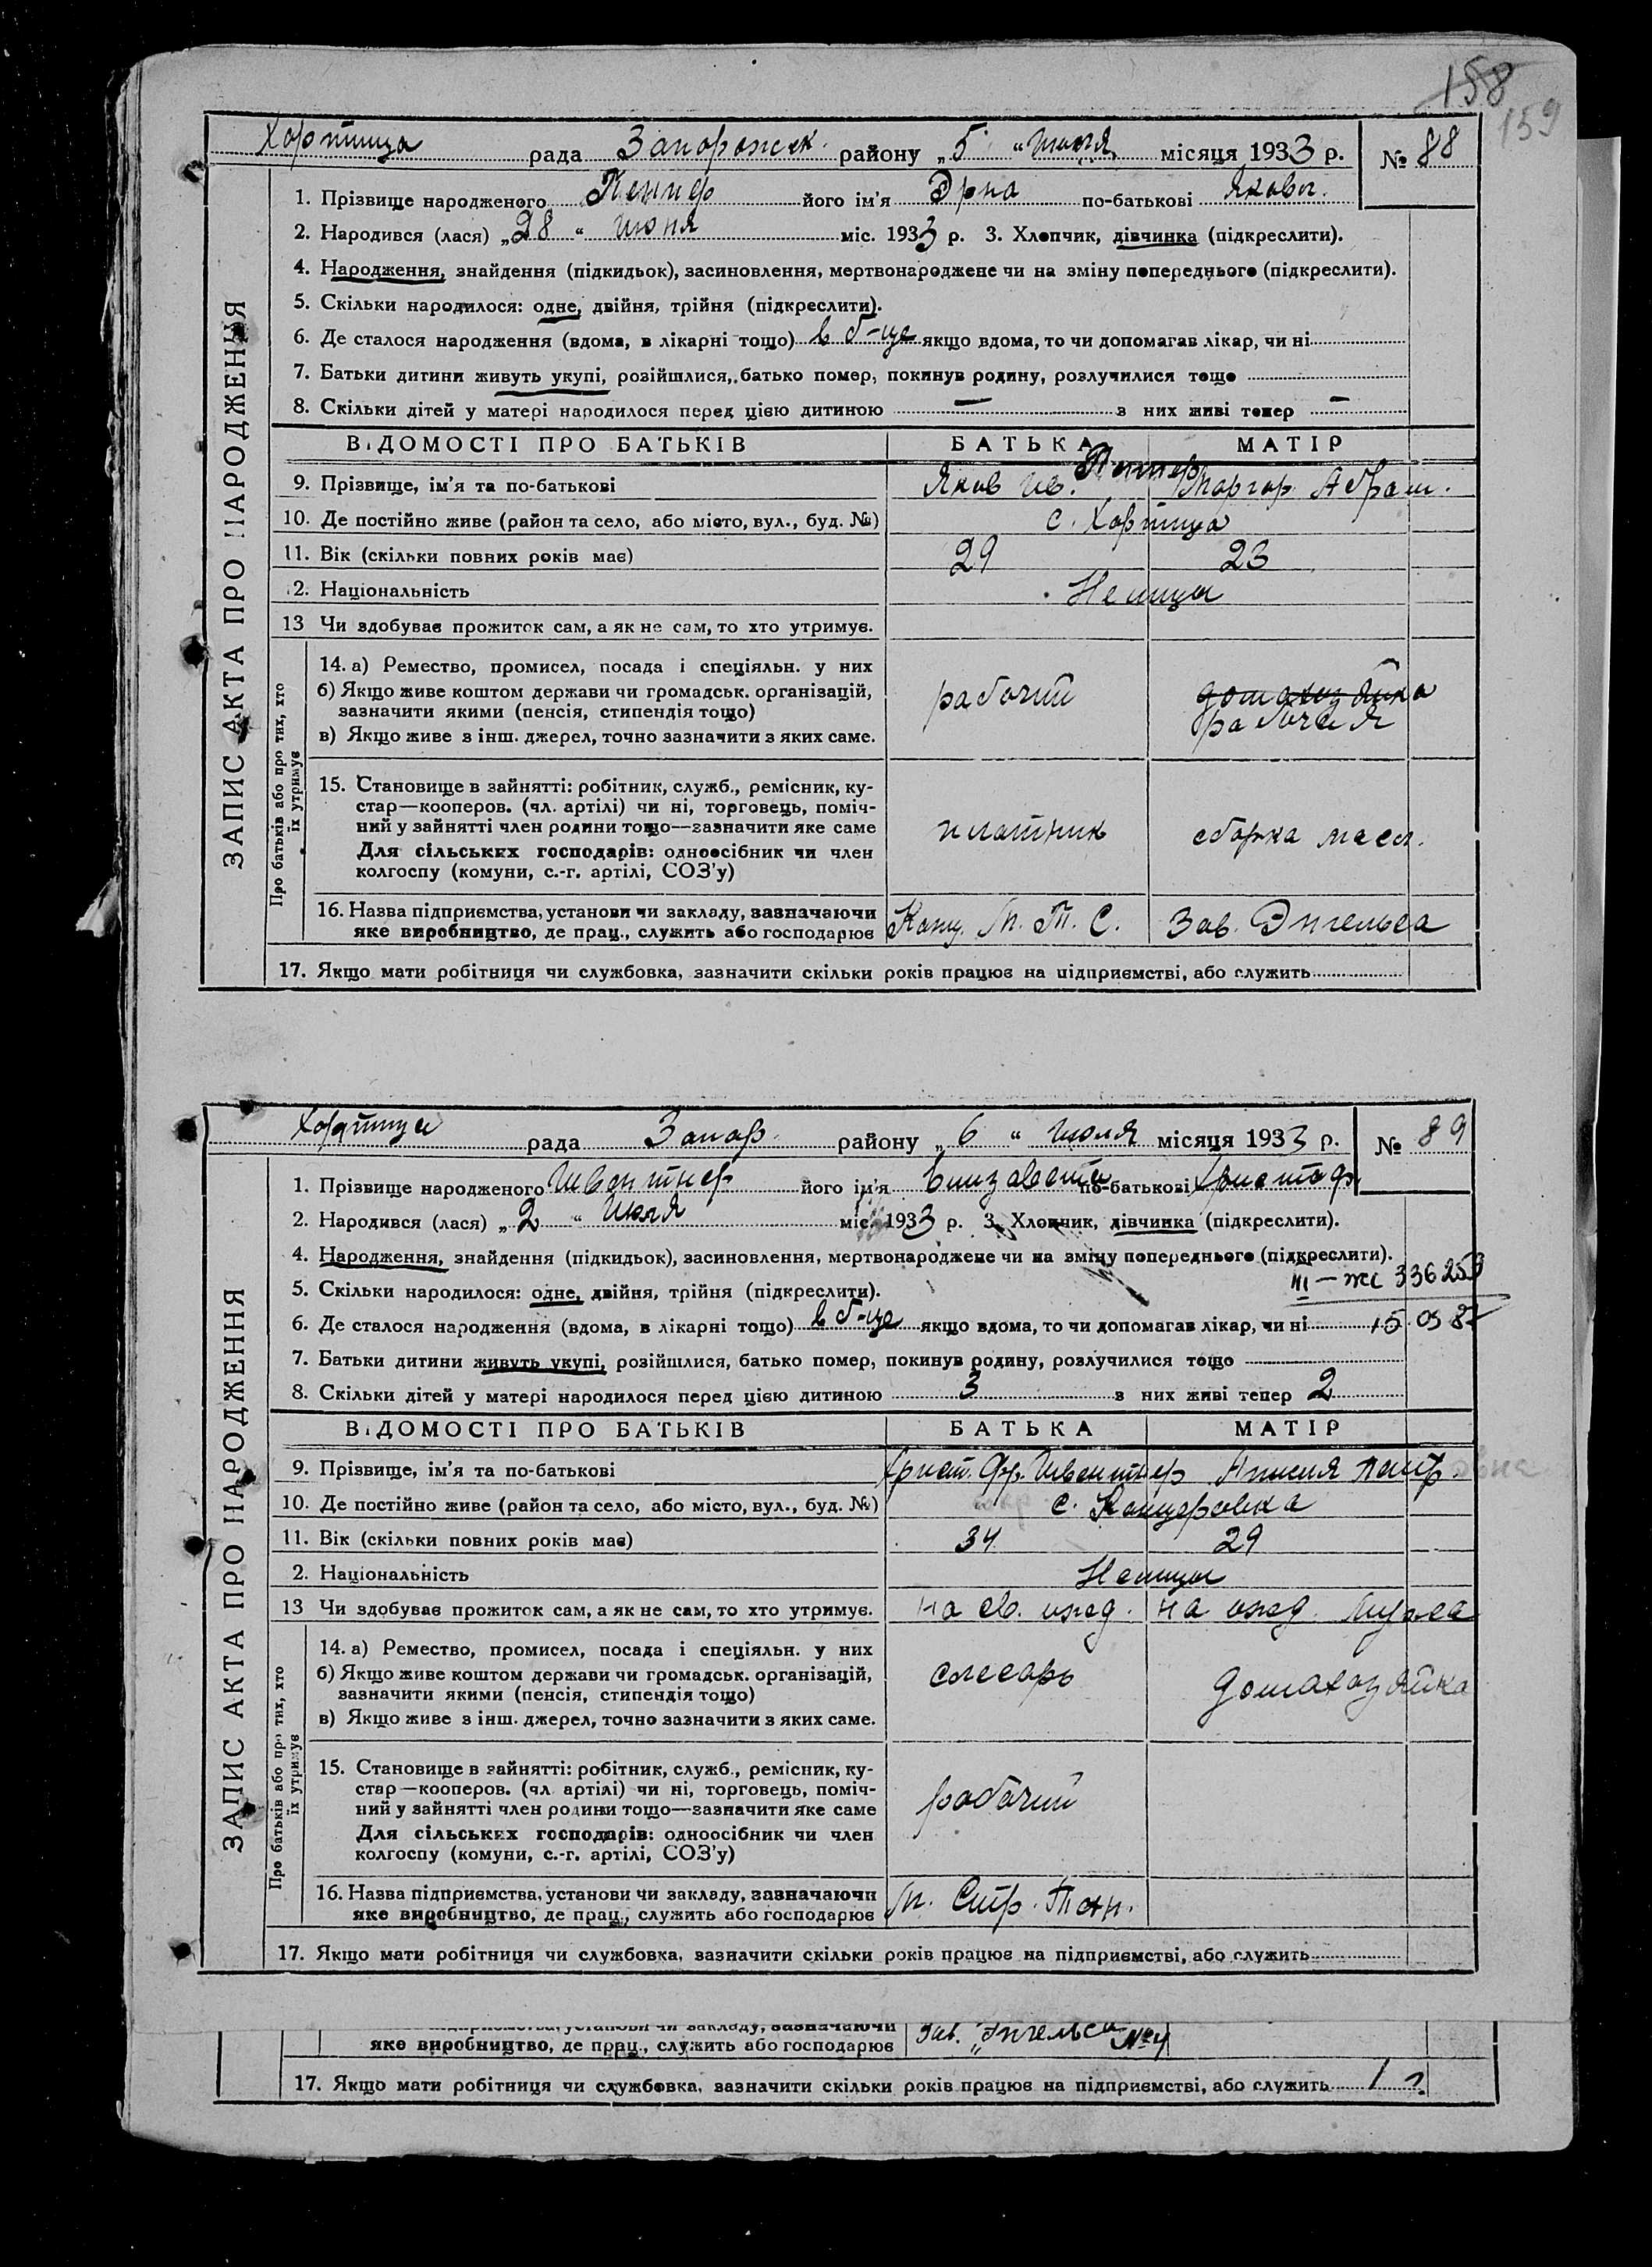 158
159
Хортица рада Запорожск. району „5“ июля місяця 1933 р. № 88
1. Прізвище народженого Пеннер його ім'я Эрна по-батькові Яковл.
2. Народився (лася) „28“ июня міс. 1933 р. 3. Хлопчик, дівчинка (підкреслити).
4. Народження, знайдення (підкидьок), засиновлення, мертвонароджене чи на зміну попереднього (підкреслити).
5. Скільки народилося: одне, двійня, трійня (підкреслити).
6. Де сталося народження (вдома, в лікарні тощо) в б-це якщо вдома, то чи допомагав лікар, чи ні
7. Батьки дитини живуть укупі, розійшлися, батько помер, покинув родину, розлучилися тощо
8. Скільки дітей у матері народилося перед цією дитиною — з них живі тепер —
ЗАПИС АКТА ПРО НАРОДЖЕННЯ
ВІДОМОСТІ ПРО БАТЬКІВ БАТЬКА МАТІР
9. Прізвище, ім'я та по-батькові Яков Ив. Пеннер Маргар. Абрам.
10. Де постійно живе (район та село, або місто, вул., буд. №) с. Хортица
11. Вік (скільки повних років має) 29 23
12. Національність Немцы
13 Чи здобуває прожиток сам, а як не сам, то хто утримує.
Про батьків або про тих, хто їх утримує
14. а) Ремество, промисел, посада і спеціяльн. у них
б) Якщо живе коштом держави чи громадськ. організацій,
зазначити якими (пенсія, стипендія тощо) рабочий домахозяйка
рабочая
в) Якщо живе з інш. джерел, точно зазначити з яких саме.
15. Становище в зайнятті: робітник, служб., ремісник, ку-
стар—кооперов. (чл. артілі) чи ні, торговець, поміч-
ний у зайнятті член родини тощо—зазначити яке саме плотник сборка масл.
Для сільських господарів: одноосібник чи член
колгоспу (комуни, с.-г. артілі, СОЗ'у)
16. Назва підприємства, установи чи закладу, зазначаючи
яке виробництво, де прац., служить або господарює М. Т. С. Зав. Энгельса
17. Якщо мати робітниця чи службовка, зазначити скільки років працює на підприємстві, або служить
Хортица рада Запор. району „6“ июля місяця 1933 р. № 89
1. Прізвище народженого Швентнер його ім'я Елизавета по-батькові Христоф.
2. Народився (лася) „2“ июля міс. 1933 р. 3. Хлопчик, дівчинка (підкреслити).
4. Народження, знайдення (підкидьок), засиновлення, мертвонароджене чи на зміну попереднього (підкреслити).
III—жс 336253
5. Скільки народилося: одне, двійня, трійня (підкреслити).
6. Де сталося народження (вдома, в лікарні тощо) в б-це якщо вдома, то чи допомагав лікар, чи ні 15 09 87
7. Батьки дитини живуть укупі, розійшлися, батько помер, покинув родину, розлучилися тощо
8. Скільки дітей у матері народилося перед цією дитиною 3 з них живі тепер 2
ЗАПИС АКТА ПРО НАРОДЖЕННЯ
ВІДОМОСТІ ПРО БАТЬКІВ БАТЬКА МАТІР
9. Прізвище, ім'я та по-батькові Христ. Фр. Швентнер Анисия Петр.
10. Де постійно живе (район та село, або місто, вул., буд. №) с. Канцеровка
11. Вік (скільки повних років має) 34 29
2. Національність Немцы
13 Чи здобуває прожиток сам, а як не сам, то хто утримує. на св. ижд. на ижд. мужа
Про батьків або про тих, хто їх утримує
14. а) Ремество, промисел, посада і спеціяльн. у них
б) Якщо живе коштом держави чи громадськ. організацій, слесарь домахозяйка
зазначити якими (пенсія, стипендія тощо)
в) Якщо живе з інш. джерел, точно зазначити з яких саме.
15. Становище в зайнятті: робітник, служб., ремісник, ку-
стар—кооперов. (чл. артілі) чи ні, торговець, поміч-
ний у зайнятті член родини тощо—зазначити яке саме рабочий
Для сільських господарів: одноосібник чи член
колгоспу (комуни, с.-г. артілі, СОЗ'у)
16. Назва підприємства, установи чи закладу, зазначаючи
яке виробництво, де прац., служить або господарює
17. Якщо мати робітниця чи службовка, зазначити скільки років працює на підприємстві, або служить
підприємства, установи чи закладу, зазначаючи
яке виробництво, де прац., служить або господарює Зав. „Энгельса №4
17. Якщо мати робітниця чи службовка, зазначити скільки років працює на підприємстві, або служить 1 г.